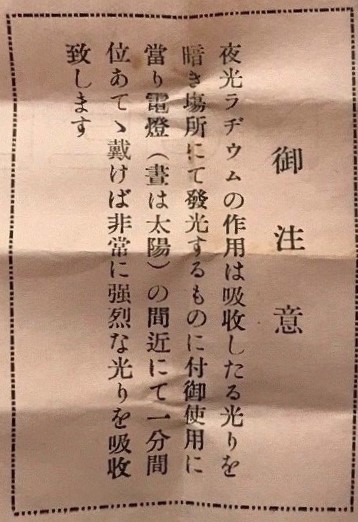 御注意
夜光ラヂウムの作用は吸收したる光りを
暗き塲所にて發光するものに付御使用に
當り電燈（晝は太陽）の間近にて一分間
位あてゝ戴けば非常に强烈な光りを吸收
致します